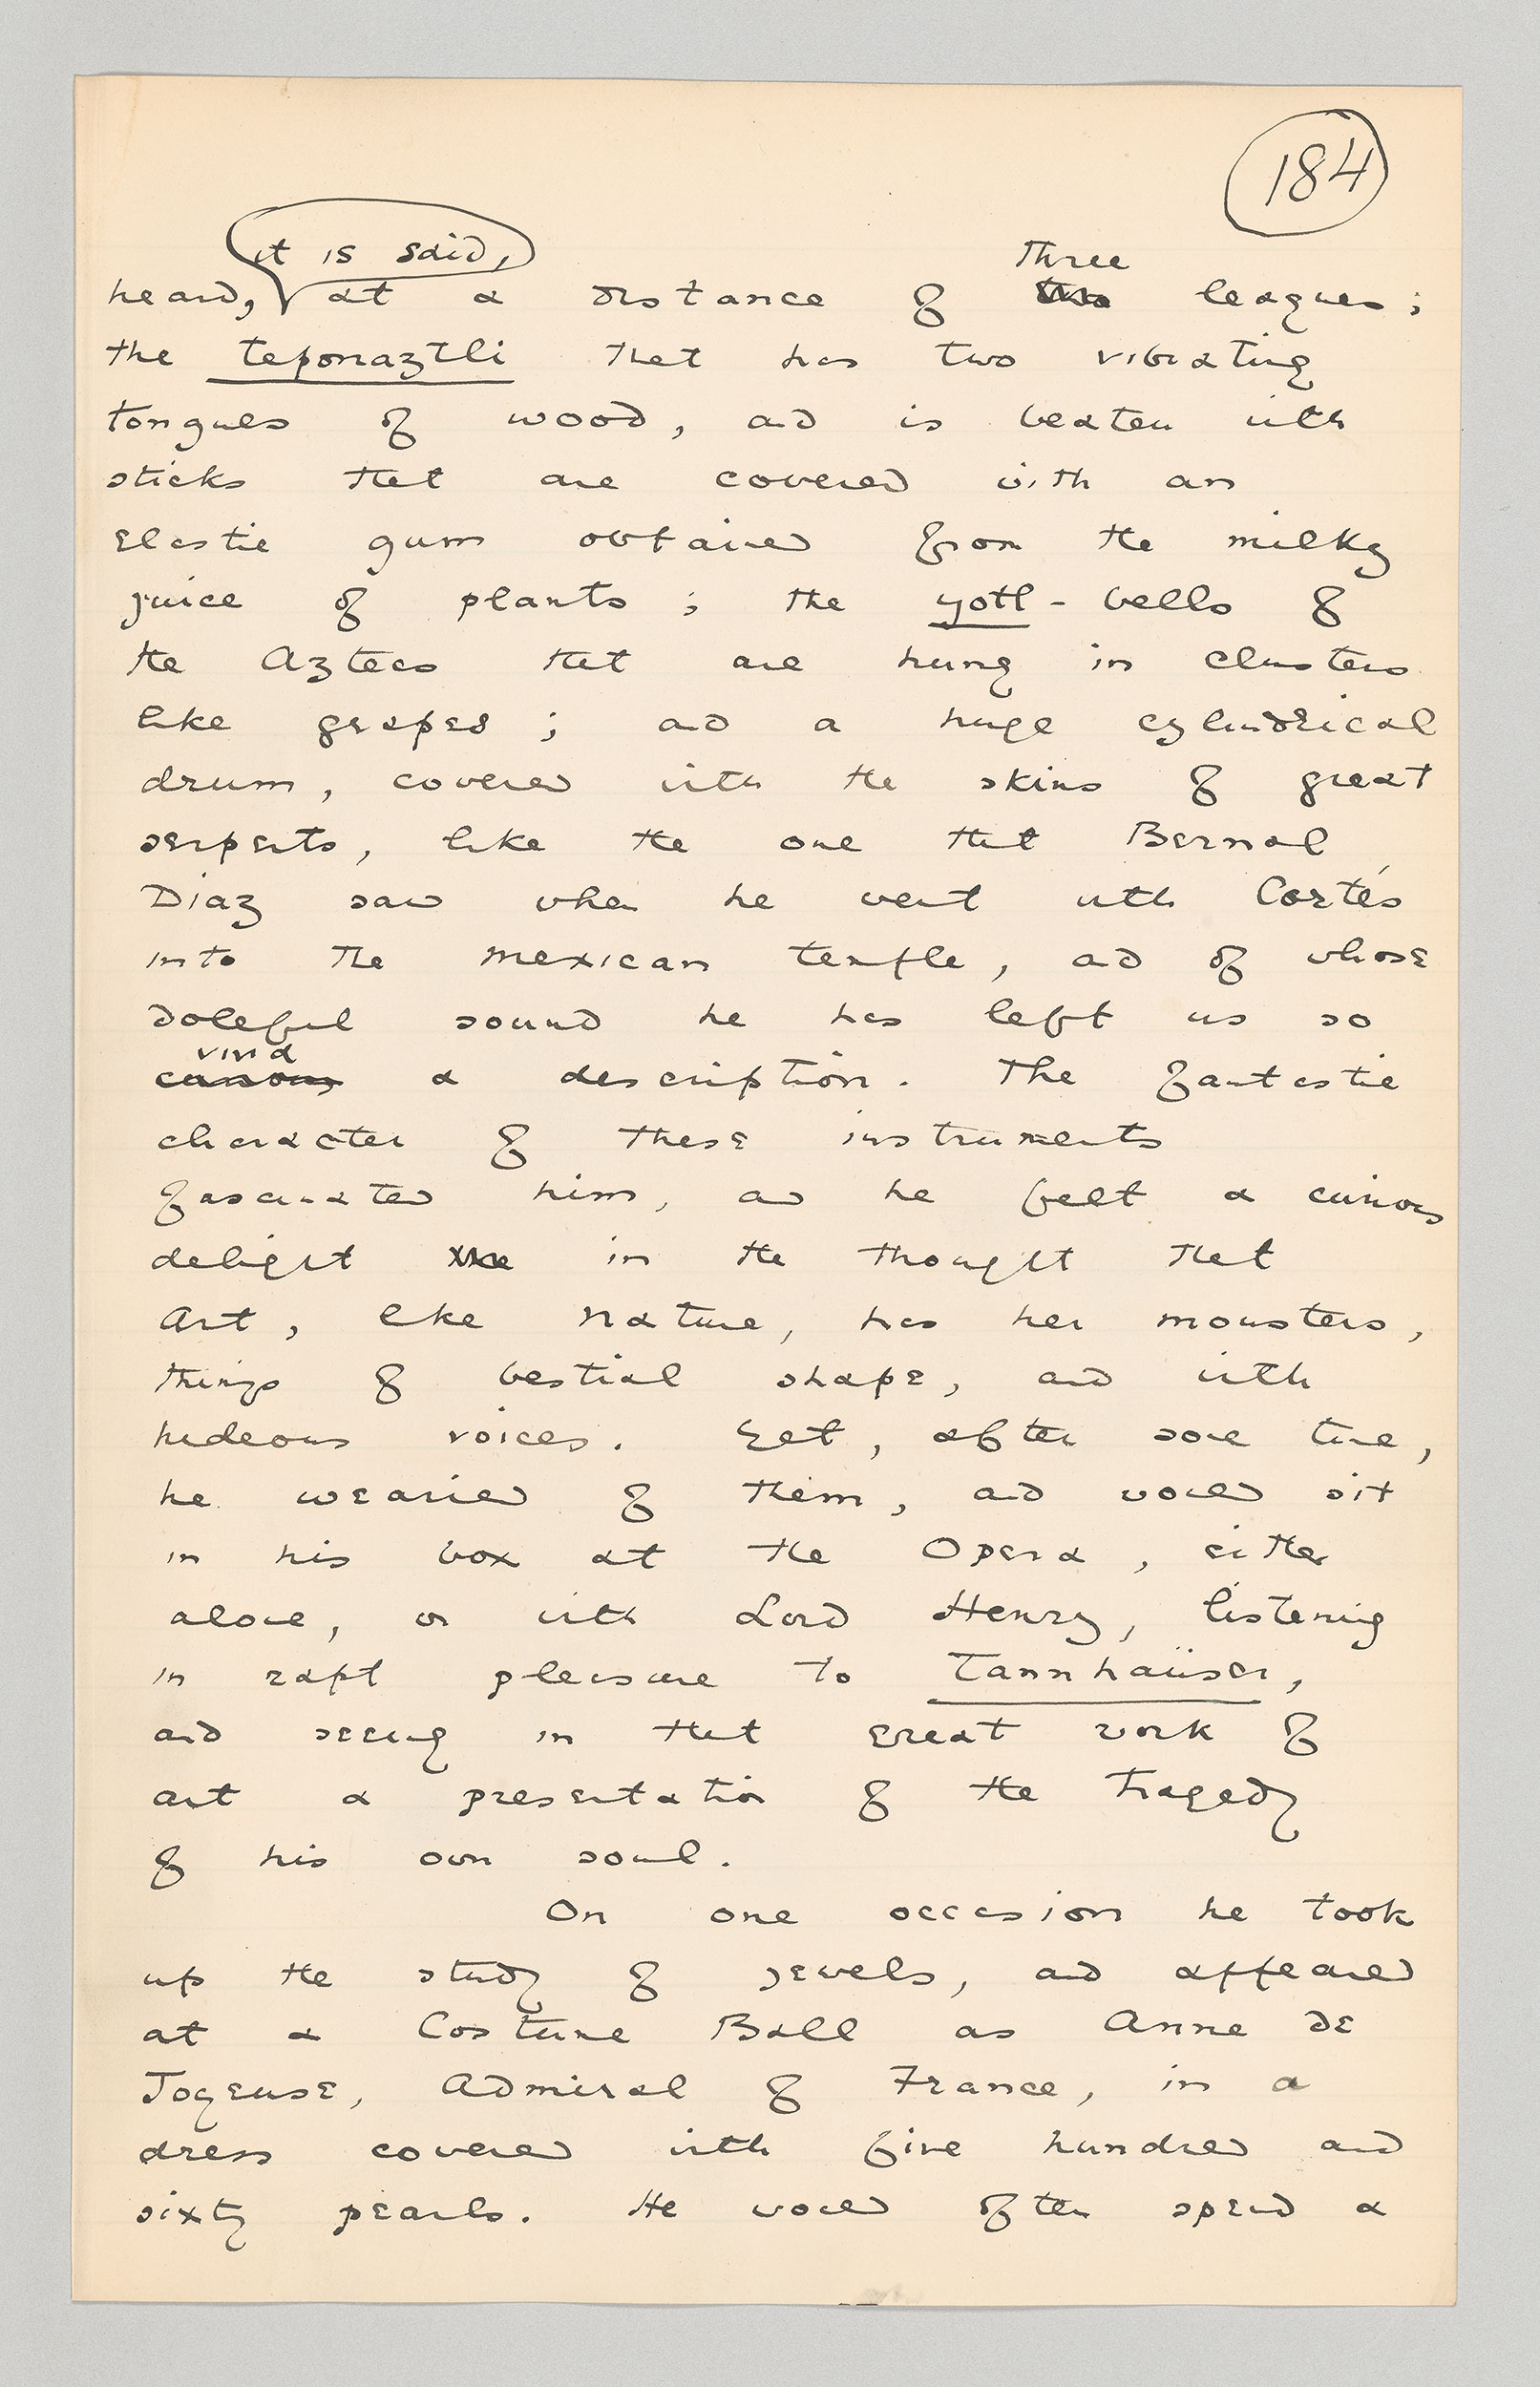 184
it is said,
Three
heard, at a distance of leagues;
the teponaztli that has two vibrating
tongues of wood, and is beaten with
sticks that are covered with an
elastic gum obtained from the milky
juice of plants; the yotl-bells of
the Aztecs that are hung in clusters
like grapes; and a huge cylindrical
drum, covered with the skins of great
serpents, like the one that Bernal
Diaz saw when he went with Cortés
into the Mexican temple, and of whose
doleful sound he has left us so
vivid
curious a description. The fantastic
character of these instruments
fascinated him, and he felt a curious
delight in the thought that
Art, like Nature, has her monsters,
things of bestial shape, and with
hideous voices. Yet, after some time,
he wearied of them, and would sit
in his box at the Opera, either
alone, or with Lord Henry, listening
in rapt pleasure to Tannhaüser,
and seeing in that great work of
art a presentation of the tragedy
of his own soul.
On one occasion he took
up the study of jewels, and appeared
at a Costume Ball as Anne de
Joyeuse, Admiral of France, in a
dress covered with five hundred and
sixty pearls. He would often spend a